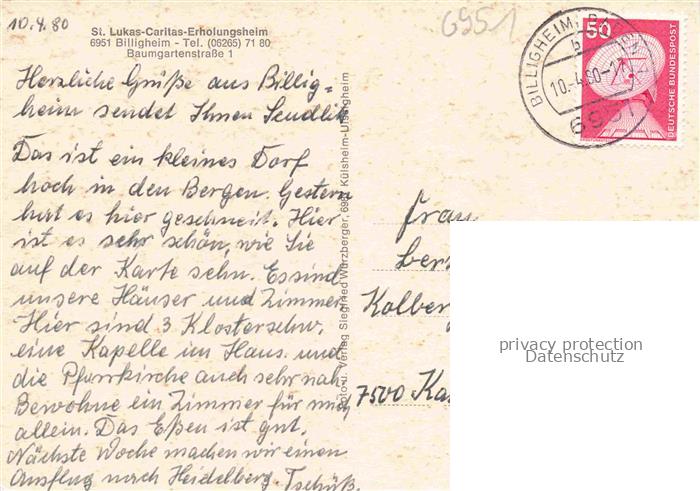 10.4.80
St. Lukas-Caritas-Erholungsheim
6951 Billigheim - Tel. (06265) 71 80
Baumgartenstraße 1
6951
Herzliche Grüße aus Billig=
heim sendet Ihnen
Das ist ein kleines Dorf
hoch in den Bergen. Gestern
hat es hier geschneit. Hier
ist es sehr schön, wie Sie
auf der Karte sehn. Es sind
unsere Häuser und Zimmer
Hier sind 3 Klosterschw.
eine Kapelle im Haus und
die Pfarrkirche auch sehr nah
Bewohne ein Zimmer für mich
allein. Das Eßen ist gut.
Nächste Woche machen wir einen
Ausflug nach Heidelberg. Tschüß.
Foto u. Verlag Siegfried Würzberger, Külsheim-Uissigheim
BILLIGHEIM, BADEN
b
10.-4.80-1
6951
50
DEUTSCHE BUNDESPOST
Frau
Kolber
7500 Ka
privacy protection
Datenschutz